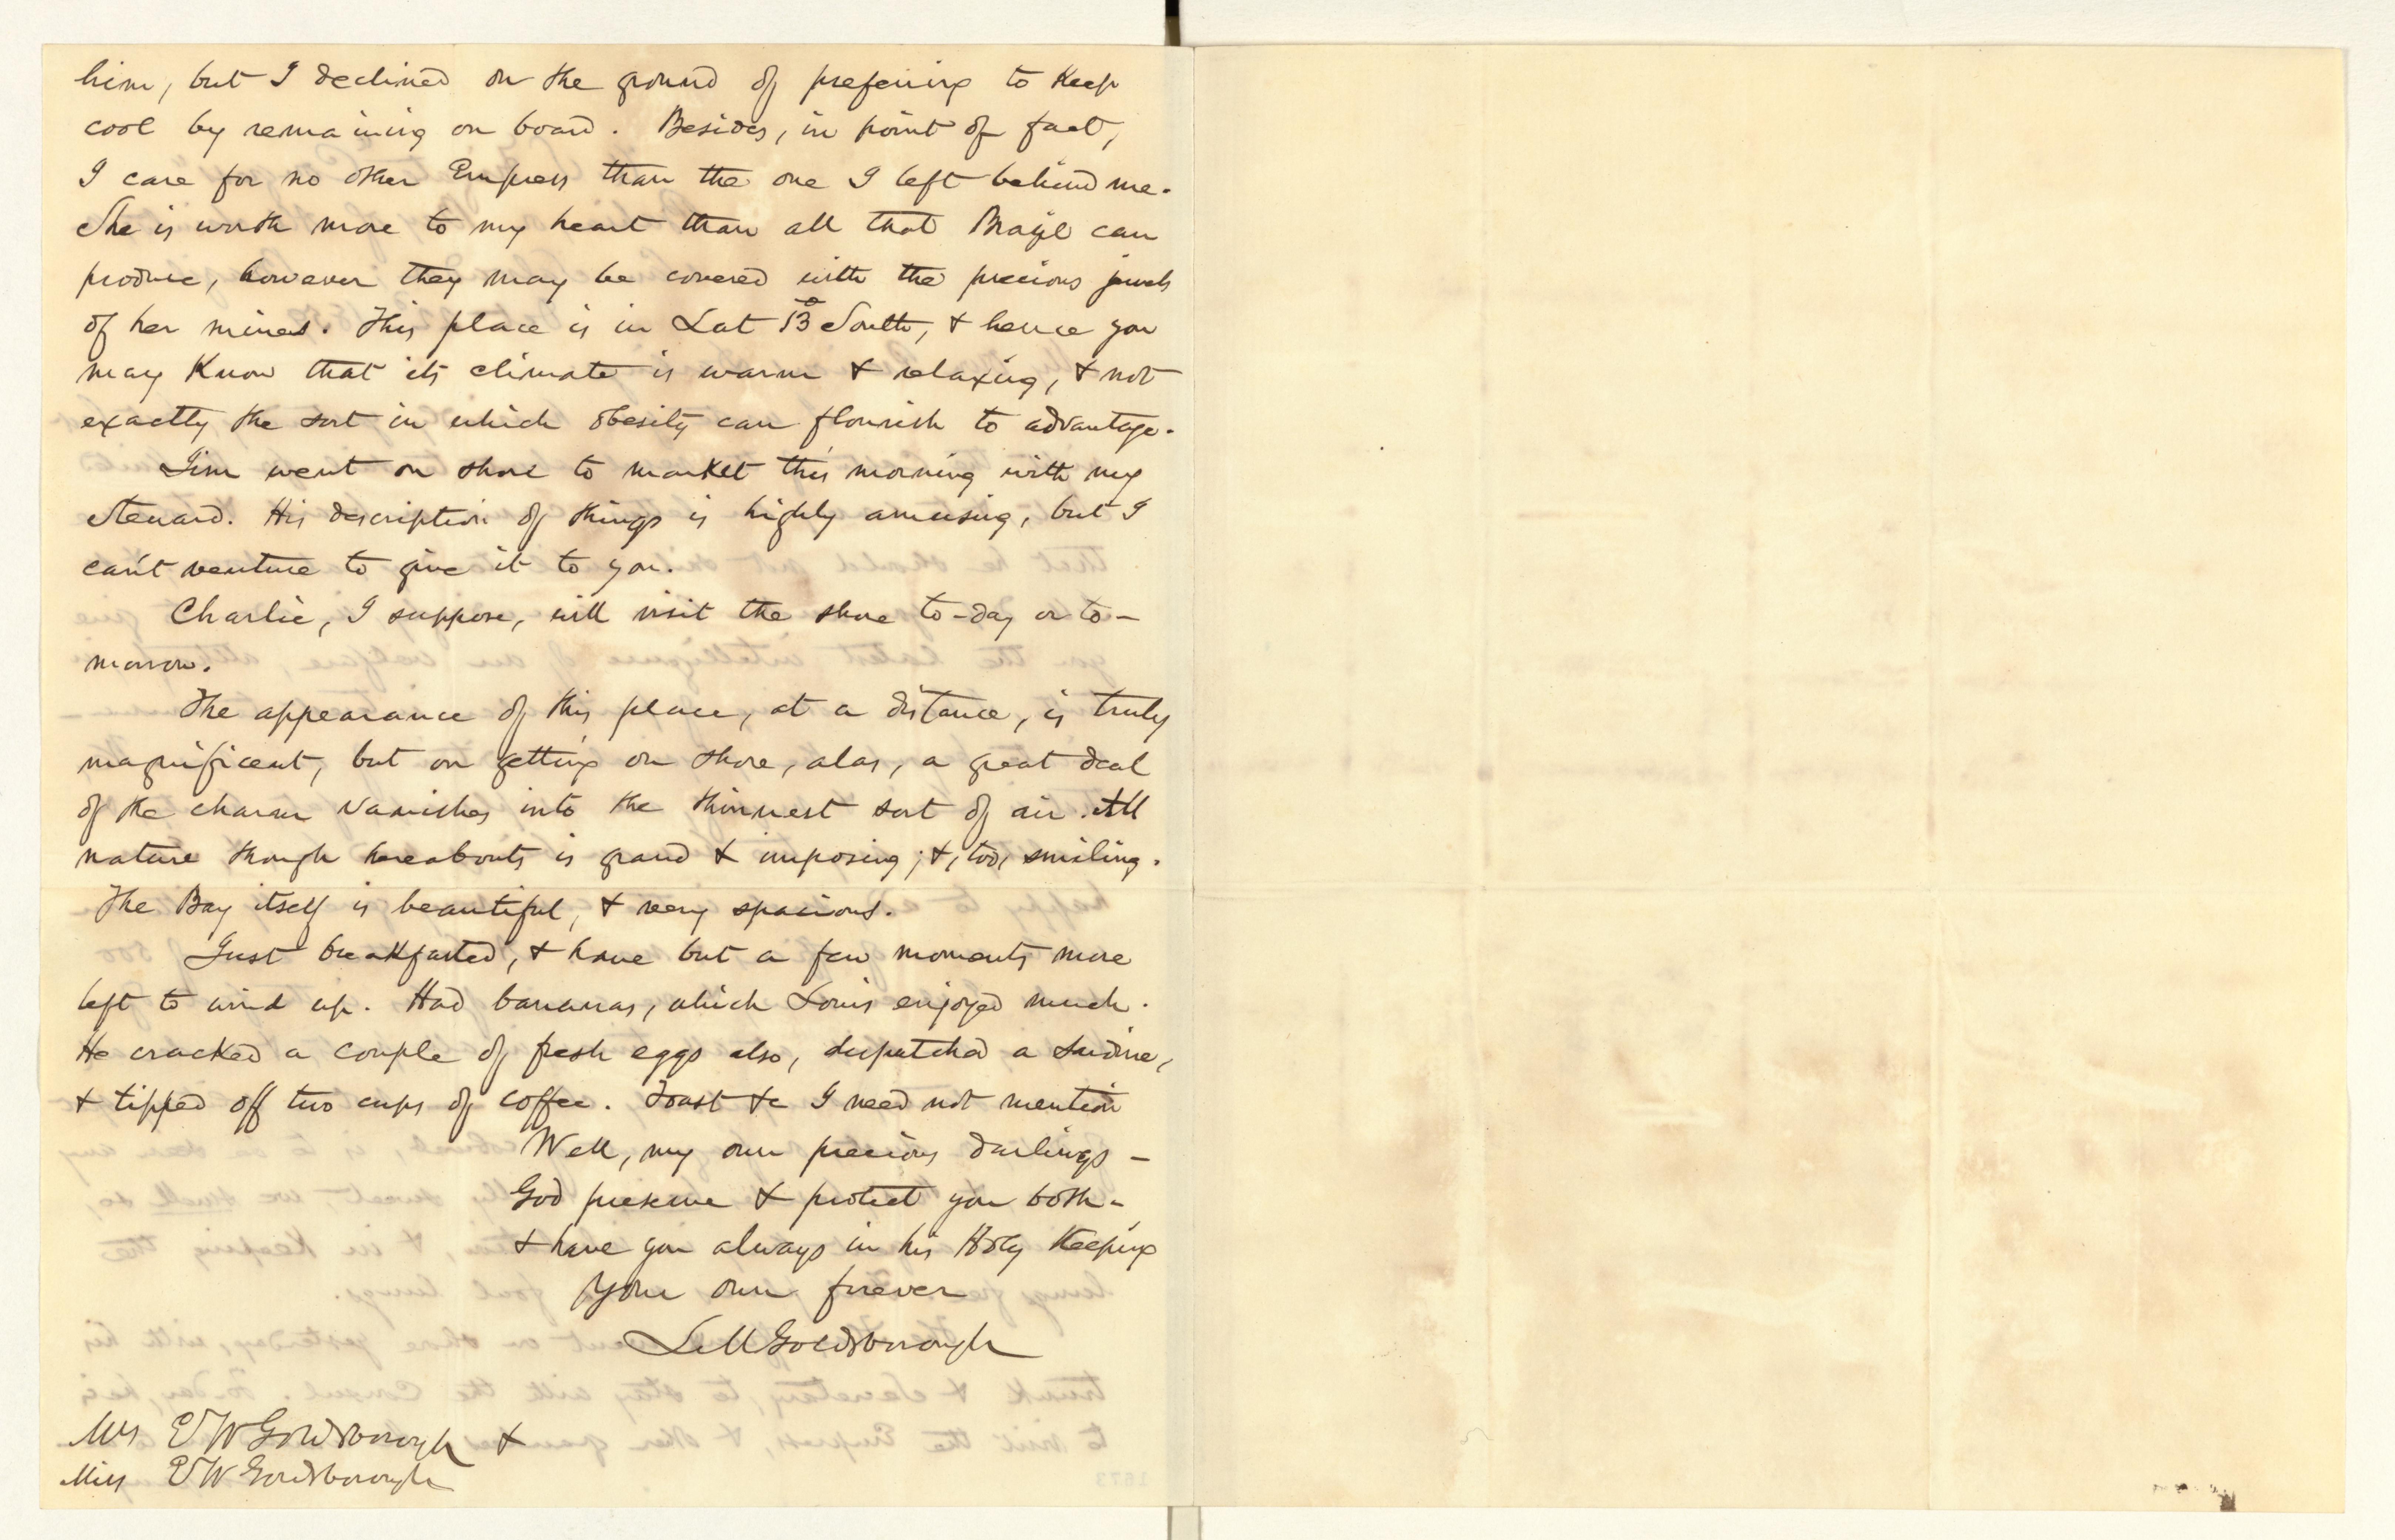 him, but I declined on the ground of preferring to keep
cool by remaining on board. Besides, in point of fact,
I care for no other Empress than the one I left behind me.
She is worth more to my heart than all that Brazil can
produce, however they may be covered with the precious jewels
of her mines. This place is in Lat 13° South, & hence you
may know that its climate is warm & relaxing, & not
exactly the sort in which obesity can flourish to advantage.
Jim went on shore to market this morning with my
steward. His description of things is highly amusing, but I
can't venture to give it to you.
Charlie, I suppose, will visit the shore to-day or to-
morrow.
The appearance of this place, at a distance, is truly
magnificent, but on getting on shore, alas, a great deal
of the charm vanishes into the thinnest sort of air. All
nature though hereabouts is grand & imposing; &, too, smiling.
The Bay itself is beautiful, & very spacious.
Just breakfasted, & have but a few moments more
left to wind up. Had bananas, which Louis enjoyed much.
He cracked a couple of fresh eggs also, dispatched a sardine,
& tipped off two cups of coffee. Toast &c I need not mention
Well, my own precious darlings -
God preserve & protect you both -
& have you always in his Holy Keeping
Your own forever
L M Goldsborough
Mrs E W Goldsborough &
Miss E W Goldsborough